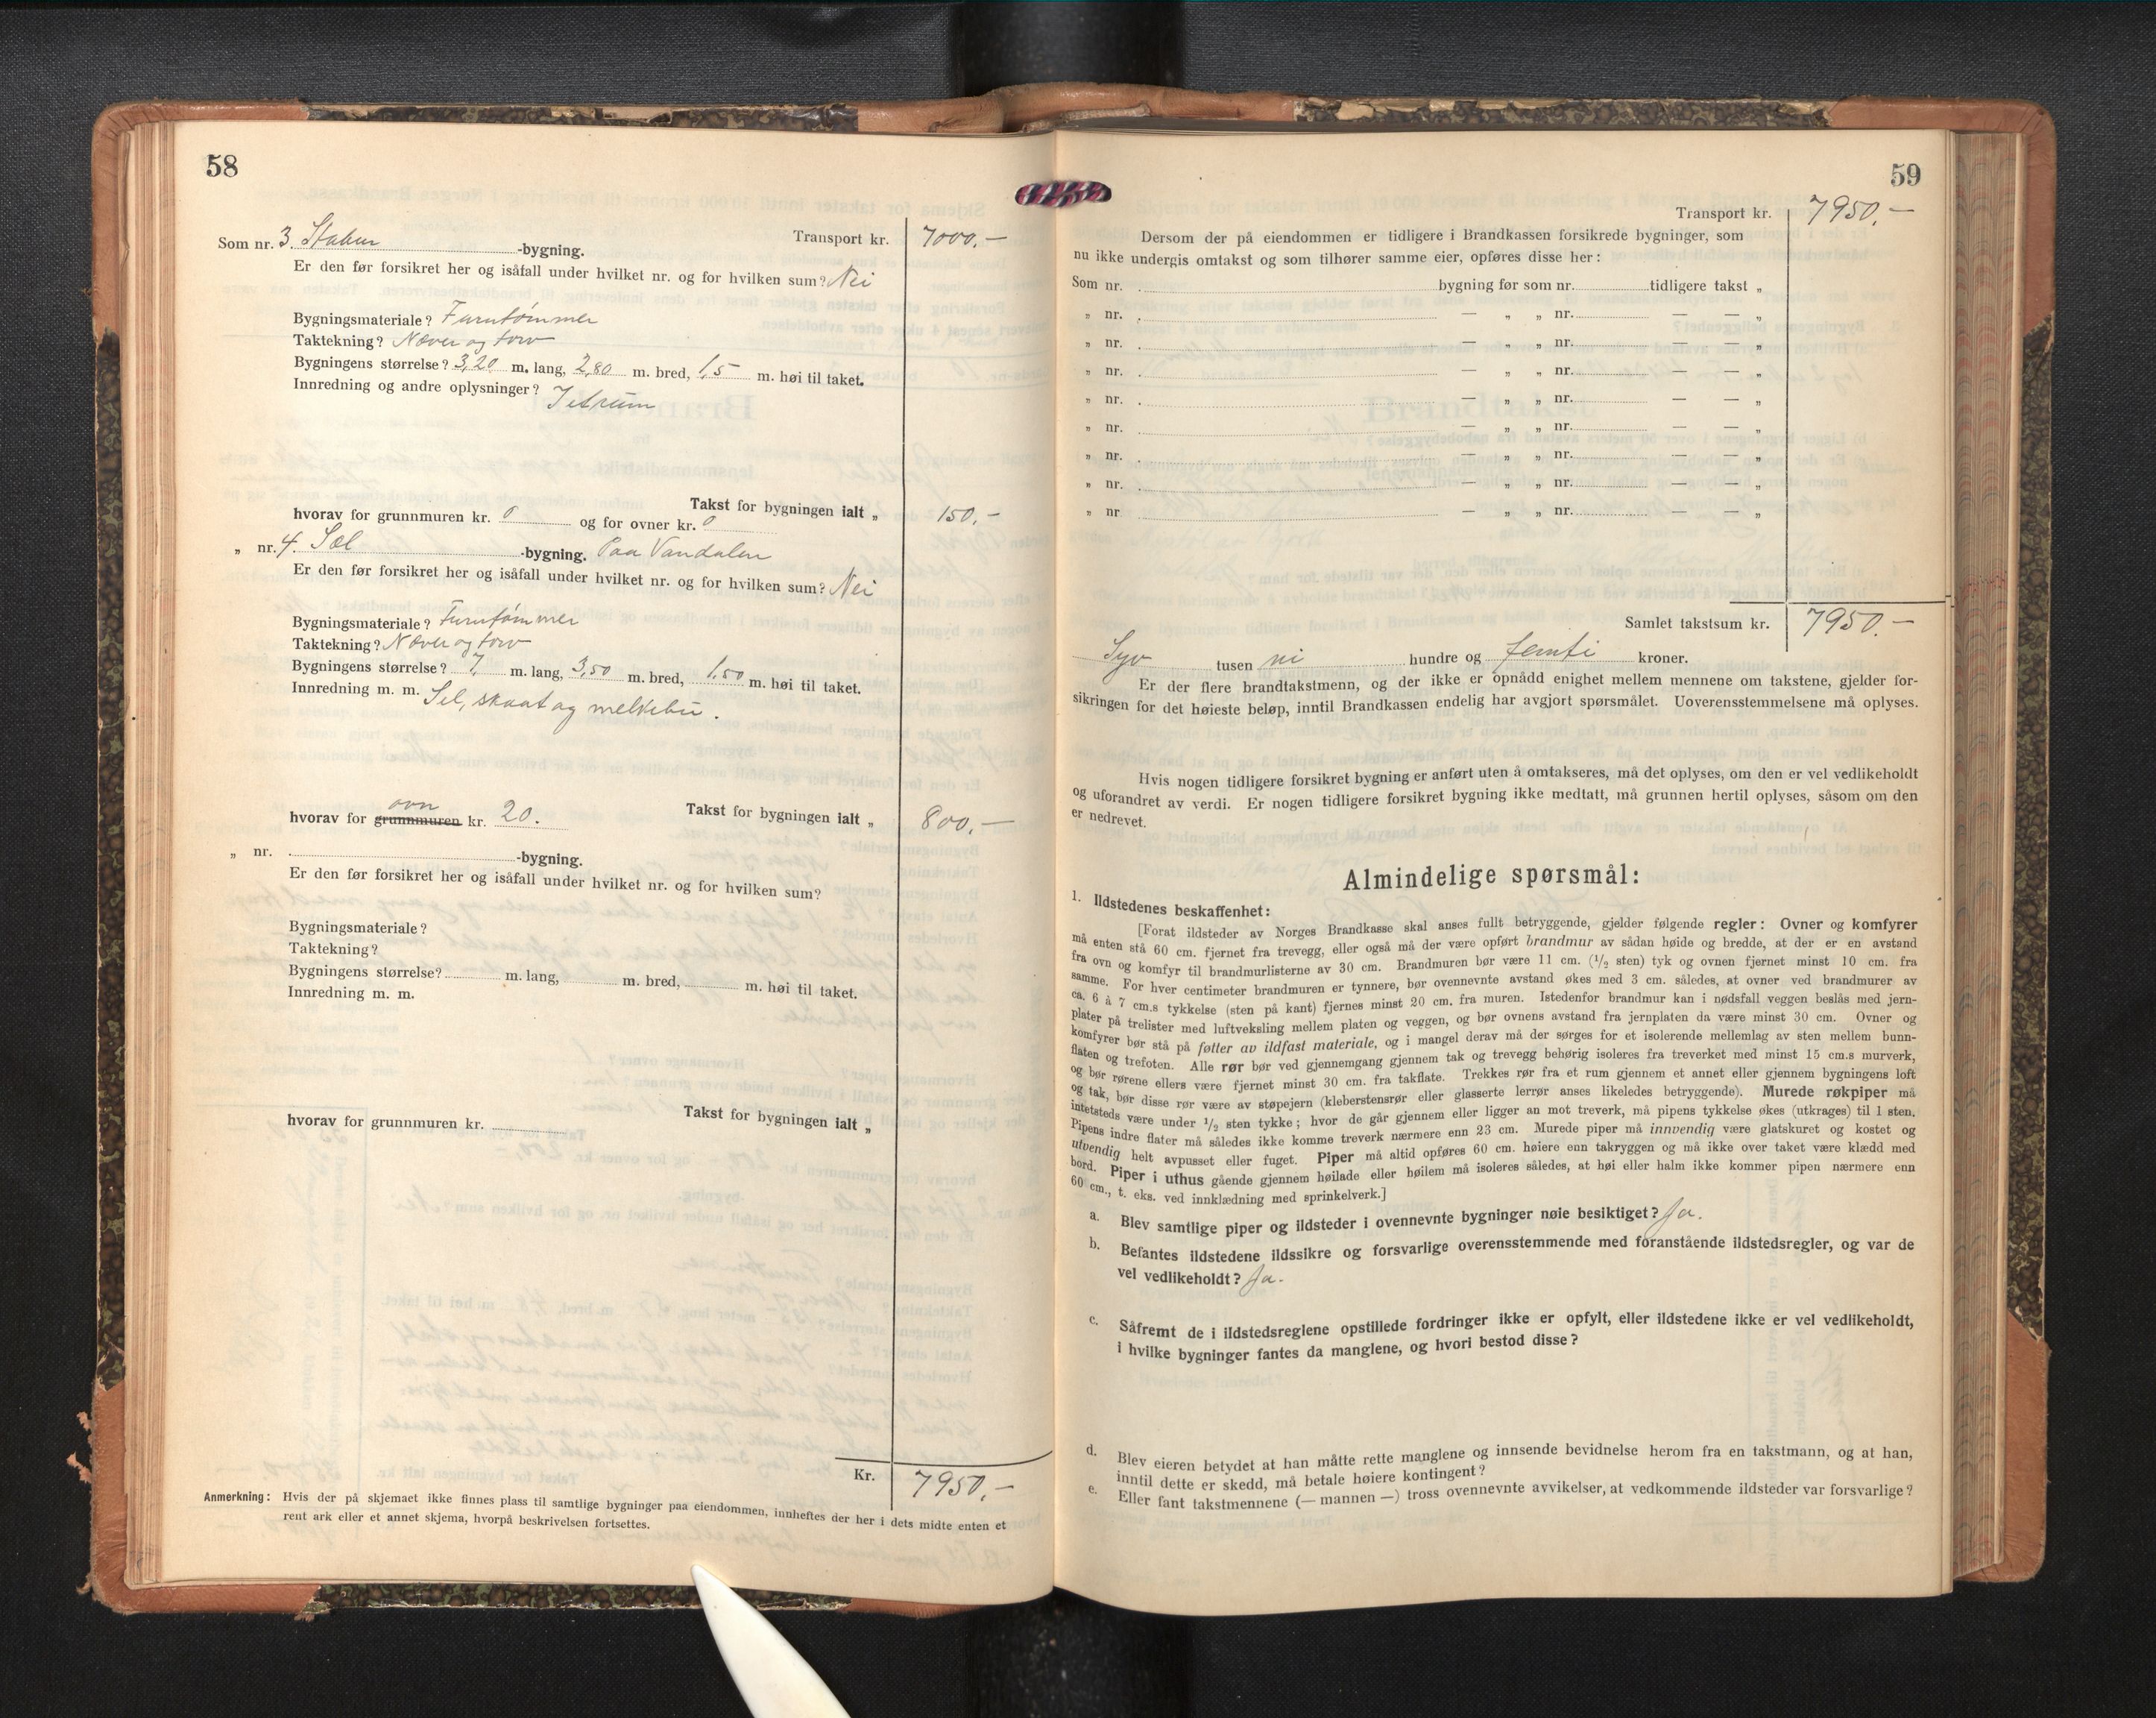 58
Som nr. 3. Stabur -bygning. Transport kr. 7000,-
Er den før forsikret her og isåfall under hvilket nr. og for hvilken sum? Nei
Bygningsmateriale? Furutømmer
Taktekning? Næver og torv
Bygningens størrelse? 3,20 m. lang, 2,80 m. bred, 1,5 m. høi til taket.
Innredning og andre oplysninger?
Takst for bygningen ialt „ 150,-
hvorav for grunnmuren kr. 0 og for ovner kr. 0
„ nr. 4. Sel -bygning. Paa Vandalen
Er den før forsikret her og isåfall under hvilket nr. og for hvilken sum? Nei
Bygningsmateriale? Furutømmer
Taktekning? Næver og torv
Bygningens størrelse? 7, m. lang, 3,50 m. bred, 1,50 m. høi til taket.
Innredning m. m. Sel, skaat og melkebu.
ovn
hvorav for grunnmuren kr. 20. Takst for bygningen ialt „ 800,-
„ nr. -bygning.
Er den før forsikret her og isåfall under hvilket nr. og for hvilken sum?
Bygningsmateriale?
Taktekning?
Bygningens størrelse? m. lang, m. bred, m. høi til taket.
Innredning m. m.
hvorav for grunnmuren kr. Takst for bygningen ialt „
Kr. 7950,-
Anmerkning: Hvis der på skjemaet ikke finnes plass til samtlige bygninger paa eiendommen, innheftes der her i dets midte enten et
rent ark eller et annet skjema, hvorpå beskrivelsen fortsettes.
59
Transport kr. 7950,-
Dersom der på eiendommen er tidligere i Brandkassen forsikrede bygninger, som
nu ikke undergis omtakst og som tilhører samme eier, opføres disse her:
Som nr. bygning før som nr. tidligere takst „
„ nr. — „ „ nr. — — „
„ nr. — „ „ nr. — — „
„ nr. — „ „ nr. — — „
„ nr. — „ „ nr. — — „
„ nr. — „ „ nr. — — „
„ nr. — „ „ nr. — — „
„ nr. — „ „ nr. — — „
„ nr — „ „ nr. — — „
Samlet takstsum kr. 7950.-
Syv tusen ni hundre og femti kroner.
Er der flere brandtakstmenn, og der ikke er opnådd enighet mellem mennene om takstene, gjelder for-
sikringen for det høieste beløp, inntil Brandkassen endelig har avgjort spørsmålet. Uoverensstemmelsene må oplyses.
Hvis nogen tidligere forsikret bygning er anført uten å omtakseres, må det oplyses, om den er vel vedlikeholdt
og uforandret av verdi. Er nogen tidligere forsikret bygning ikke medtatt, må grunnen hertil oplyses, såsom om den
er nedrevet.
Almindelige spørsmål:
1. Ildstedenes beskaffenhet:
[Forat ildsteder av Norges Brandkasse skal anses fullt betryggende, gjelder følgende regler: Ovner og komfyrer
må enten stå 60 cm. fjernet fra trevegg, eller også må der være opført brandmur av sådan høide og bredde, at der er en avstand
fra ovn og komfyr til brandmurlisterne av 30 cm. Brandmuren bør være 11 cm. (1/2 sten) tyk og ovnen fjernet minst 10 cm. fra
samme. For hver centimeter brandmuren er tynnere, bør ovennevnte avstand økes med 3 cm. således, at ovner ved brandmurer av
ca. 6 à 7 cm.s tykkelse (sten på kant) fjernes minst 20 cm. fra muren. Istedenfor brandmur kan i nødsfall veggen beslås med jern-
plater på trelister med luftveksling mellem platen og veggen, og bør ovnens avstand fra jernplaten da være minst 30 cm. Ovner og
komfyrer bør stå på føtter av ildfast materiale, og i mangel derav må der sørges for et isolerende mellemlag av sten mellem bunn-
flaten og trefoten. Alle rør bør ved gjennemgang gjennem tak og trevegg behørig isoleres fra treverket med minst 15 cm.s murverk,
og bør rørene ellers være fjernet minst 30 cm. fra takflate. Trekkes rør fra et rum gjennem et annet eller gjennem bygningens loft
og tak, bør disse rør være av støpejern (kleberstensrør eller glasserte lerrør anses likeledes betryggende). Murede røkpiper må
intetsteds være under 1/2 sten tykke; hvor de går gjennem eller ligger an mot treverk, må pipens tykkelse økes (utkrages) til 1 sten.
Pipens indre flater må således ikke komme treverk nærmere enn 23 cm. Murede piper må innvendig være glatskuret og kostet og
utvendig helt avpusset eller fuget. Piper må altid opføres 60 cm. høiere enn takryggen og må ikke over taket være klædd med
bord. Piper i uthus gående gjennem høilade eller høilem må isoleres således, at høi eller halm ikke kommer pipen nærmere enn
60 cm., t. eks. ved innklædning med sprinkelverk.]
a. Blev samtlige piper og ildsteder i ovennevnte bygninger nøie besiktiget? Ja.
b. Befantes ildstedene ildssikre og forsvarlige overensstemmende med foranstående ildstedsregler, og var de
vel vedlikeholdt? Ja.
c. Såfremt de i ildstedsreglene opstillede fordringer ikke er opfylt, eller ildstedene ikke er vel vedlikeholdt,
i hvilke bygninger fantes da manglene, og hvori bestod disse?
d. Blev eieren betydet at han måtte rette manglene og innsende bevidnelse herom fra en takstmann, og at han,
inntil dette er skedd, må betale høiere kontingent?
e. Eller fant takstmennene (— mannen —) tross ovennevnte avvikelser, at vedkommende ildsteder var forsvarlige?